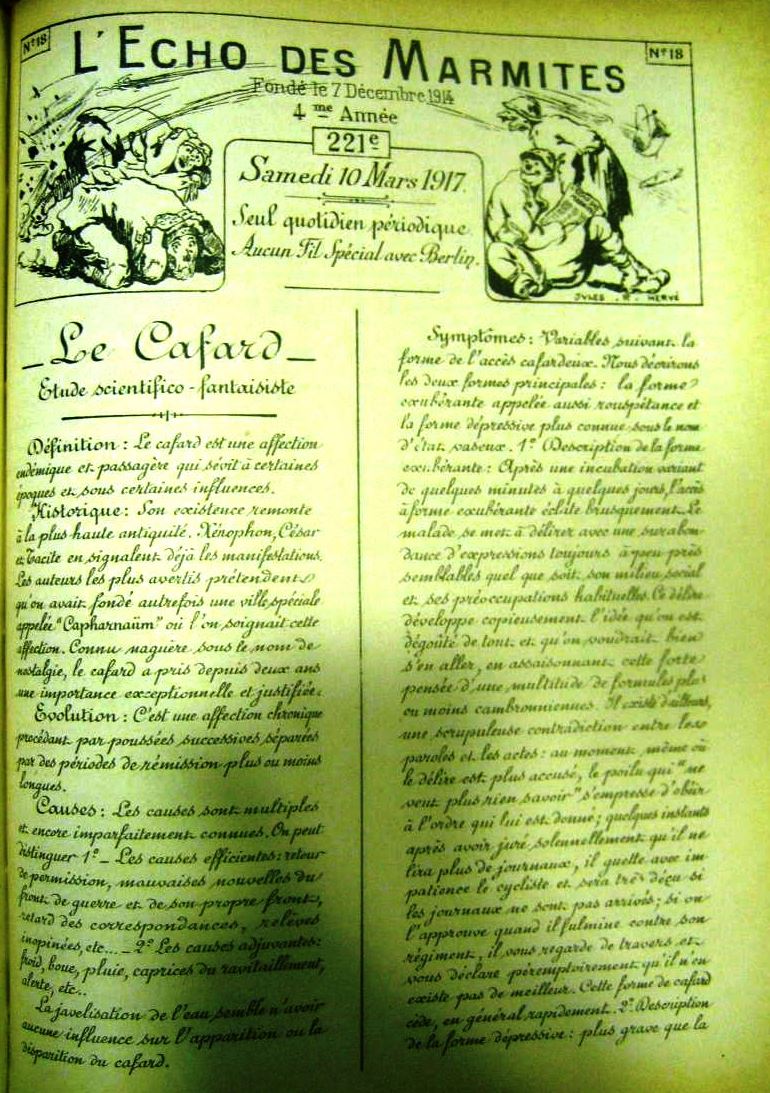 N° 18
L'ECHO DES MARMITES
N° 18
Fondé le 7 Décembre 1914
4me Année
221e
Samedi 10 Mars 1917.
Seul quotidien périodique
Aucun Fil Spécial avec Berlin.
JULES . R . HERVÉ
_ Le Cafard _
Etude scientifico-fantaisiste
Définition : Le cafard est une affection
endémique et passagère qui sévit à certaines
époques et sous certaines influences.
Historique : Son existence remonte
à la plus haute antiquité. Xénophon, César
et Tacite en signalent déjà les manifestations.
Les auteurs les plus avertis prétendent
qu'on avait fondé autrefois une ville spéciale
appelée "Capharnaüm" où l'on soignait cette
affection. Connu naguère sous le nom de
nostalgie, le cafard a pris depuis deux ans
une importance exceptionnelle et justifiée.
Evolution : C'est une affection chronique
procédant par poussées successives séparées
par des périodes de rémission plus ou moins
longues.
Causes : Les causes sont multiples
et encore imparfaitement connues. On peut
distinguer 1° _ Les causes efficientes : retour
de permission, mauvaises nouvelles du
front de guerre et de son propre front,
retard des correspondances, relèves
inopinées, etc... _ 2° Les causes adjuvantes :
froid, boue, pluie, caprices du ravitaillement,
alerte, etc..
La javelisation de l'eau semble n'avoir
aucune influence sur l'apparition ou la
disparition du cafard.
Symptômes : Variables suivant la
forme de l'accès cafardeux. Nous décrirons
les deux formes principales : la forme
exubérante appelée aussi rouspétance et
la forme dépressive plus connue sous le nom
d'état vaseux. 1° Description de la forme
exubérante : Après une incubation variant
de quelques minutes à quelques jours, l'accès
à forme exubérante éclate brusquement. Le
malade se met à délirer avec une surabon-
dance d'expressions toujours à peu près
semblables quel que soit son milieu social
et ses préoccupations habituelles. Ce délire
développe copieusement l'idée qu'on est
dégoûté de tout et qu'on voudrait bien
s'en aller, en assaisonnant cette forte
pensée d'une multitude de formules plus
ou moins cambronniennes. Il existe d'ailleurs,
une scrupuleuse contradiction entre les
paroles et les actes : au moment même où
le délire est plus accusé, le poilu qui "ne
veut plus rien savoir" s'empresse d'obéir
à l'ordre qui lui est donné ; quelques instants
après avoir juré solennellement qu'il ne
lira plus de journaux, il guette avec im-
patience le cycliste et sera très déçu si
les journaux ne sont pas arrivés ; si on
l'approuve quand il fulmine contre son
régiment, il vous regarde de travers et
vous déclare péremptoirement qu'il n'en
existe pas de meilleur. Cette forme de cafard
cède, en général rapidement. 2° Description
de la forme dépressive : plus grave que la